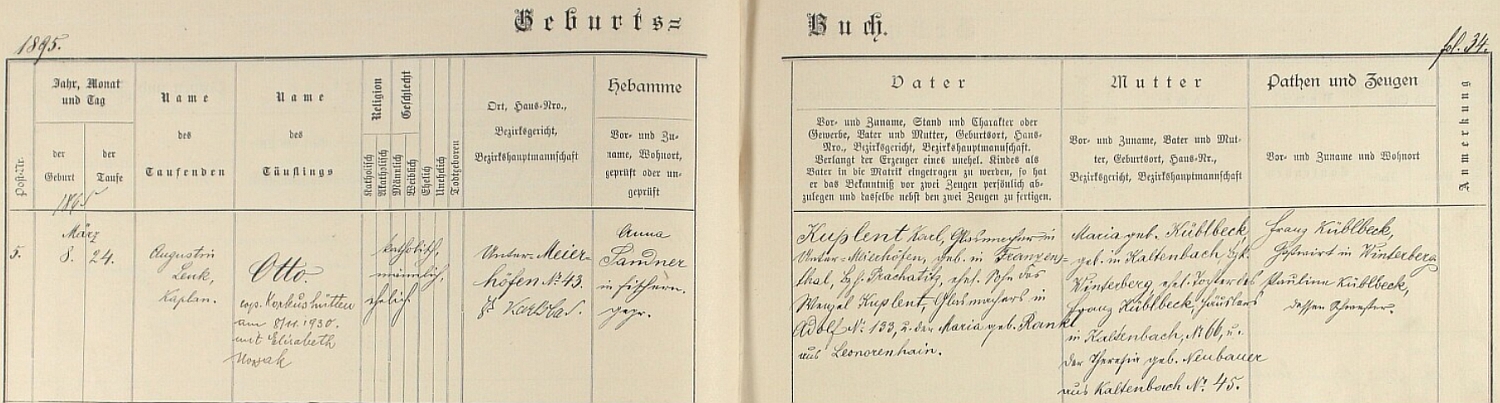 Geburts=
Buch.
1895.
fol. 34.
Post-Nr.
Jahr, Monat
und Tag
der
Geburt
der
Taufe
Name
des
Taufenden
Name
des
Täuflings
Religion
Katholisch
Akatholisch
Geschlecht
Männlich
Weiblich
Ehelich
Unehelich
Todtgeboren
Ort, Haus-Nro.,
Bezirksgericht,
Bezirkshauptmannschaft
Hebamme
Vor- und Zu-
name, Wohnort,
geprüft oder un-
geprüft
Vater
Vor- und Zuname, Stand und Charakter oder
Gewerbe, Vater und Mutter, Geburtsort, Haus-
Nro., Bezirksgericht, Bezirkshauptmannschaft.
Verlangt der Erzeuger eines unehel. Kindes als
Vater in die Matrik eingetragen zu werden, so hat
er das Bekenntniß vor zwei Zeugen persönlich ab-
zulegen und dasselbe nebst den zwei Zeugen zu fertigen.
Mutter
Vor- und Zuname, Vater und Mut-
ter, Geburtsort, Haus-Nr.,
Bezirksgericht, Bezirkshauptmannschaft
Pathen und Zeugen
Vor- und Zuname und Wohnort
Anmerkung
5.
März
8.
24.
Augustin
Lenk,
Kaplan.
Otto.
cop.
am 8/11. 1930.
mit Elisabeth
katholisch,
männlich,
ehelich
Unter-Meier-
höfen No. 43.
Anna
Sandner
in Fischern.
gepr.
Kuplent Karl, Glasmacher in
Unter-Maierhöfen, geb. in Franzen-
thal, Bzh. Prachatitz, ehel. Sohn des
Wenzel Kuplent, Glasmachers in
Adolf No. 133, u. der Maria geb. Rankl
aus Leonorenhain.
Maria geb. Küblbeck
geb. in Kaltenbach,
Winterberg ehel. Tochter des
Franz Küblbeck, Häuslers
in Kaltenbach, No. 66, u.
der Theresia geb. Neubauer
aus Kaltenbach No. 45.
Franz Küblbeck,
Gastwirt in Winterberg
Paulina Küblbeck,
dessen Schwester.